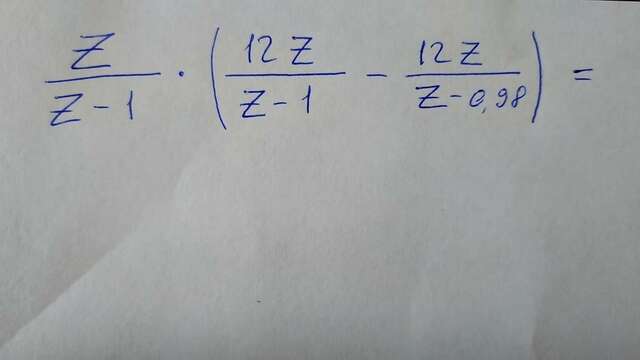 Z/(Z-1) · (12Z/(Z-1) - 12Z/(Z-0,98)) =